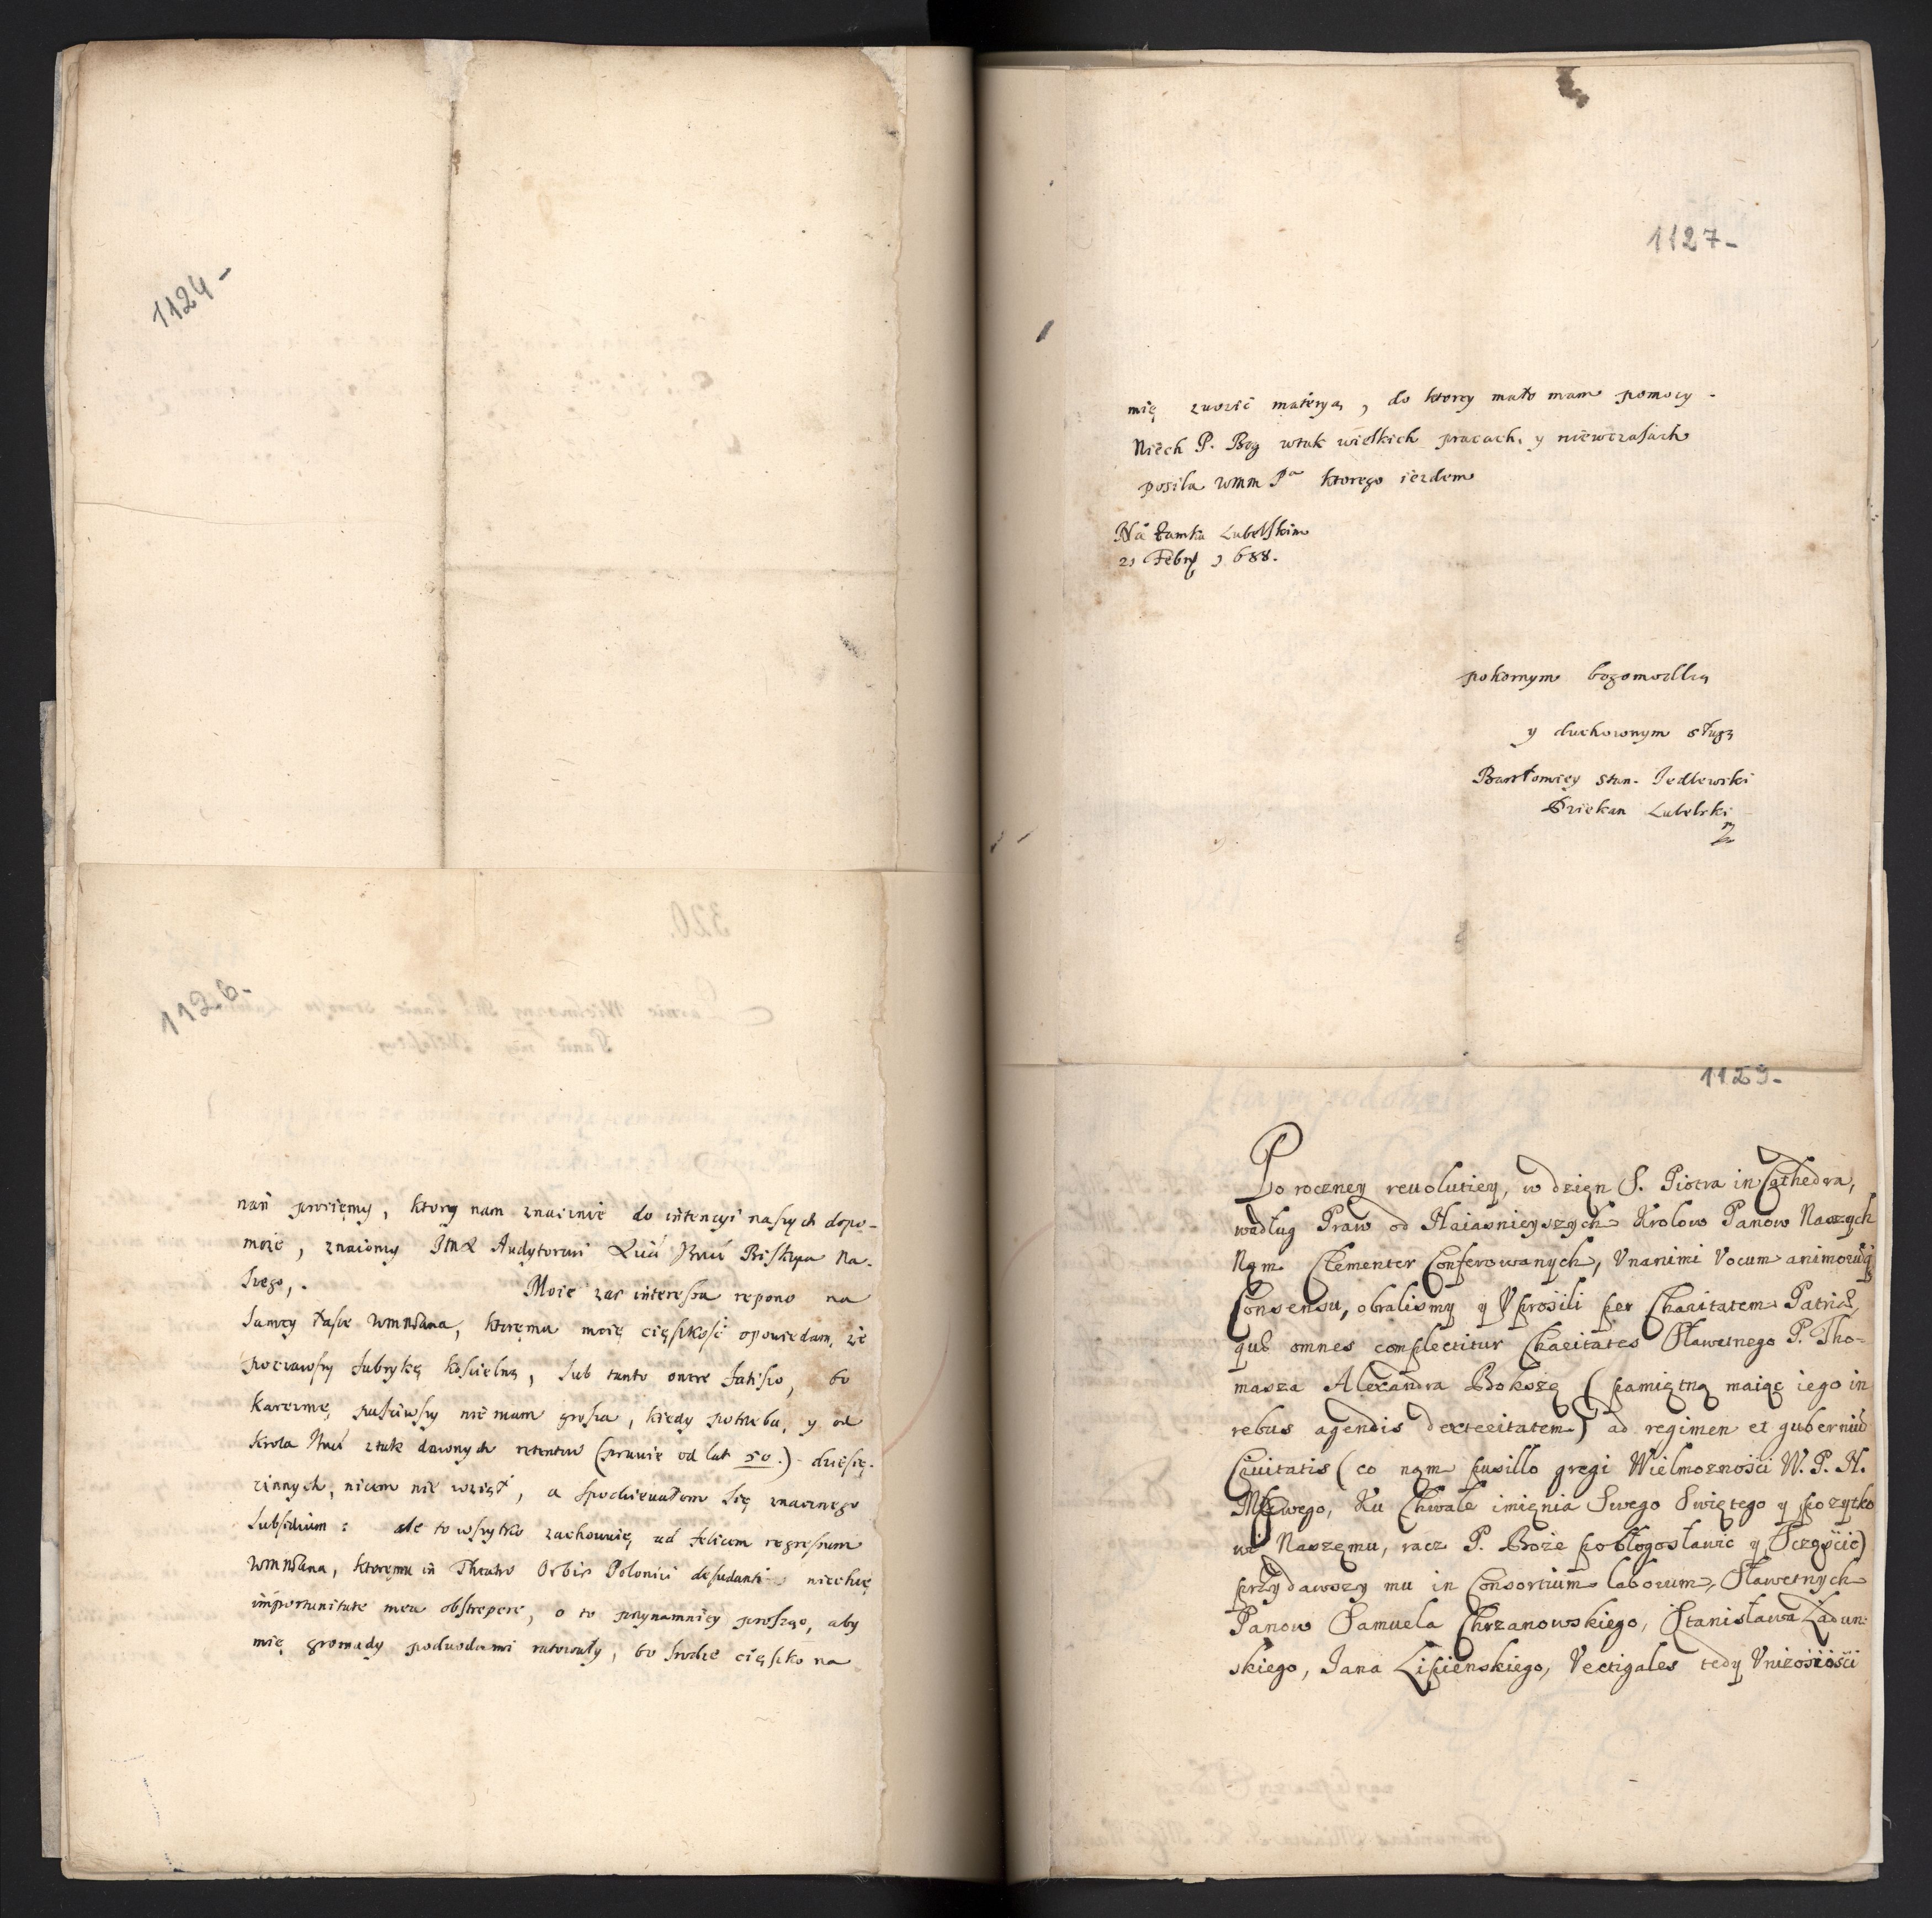 1124-
1126-
nań prosięmy, ktory nam znacznie do intencyi naszych dopo-
może, znaiomy Audytorowi Biskupa Na-
szego,. Moie zas interessa repono na
samey łasce wmmPana, ktoremu moię cięszkość opowiedam, że
począwszy fabrykę kościelną, sub tanto onere fatisco, bo
Karczmę puściwszy nie mam grosza, kiedy potrzeba, y od
Krola ztak dawnych retentow (prawie od lat 50.) dziesię-
cinnych, nicem nie wziął, a spodziewałem się znacznego
subsidium: ale to wszytko zachowuię ad felicem regressum
wmmPana, ktoremu in Theatro Orbis Polonici desudanti niechcę
importunitate mea obstrepere, o to przynamniey proszęc, aby
mię gromady podwodami ratowały, bo srodze cięszko na
1127-
mię zwozić materyą, do ktorey mało mam pomocy.
Niech P. Bog wtak wielkich pracach, y niewczasach
posila wmm Pa ktorego iezdem
Na Zamku Lubelskim
21 Febr 1688.
pokornym bogomodlcą
y duchownym sługą
Bartłomiey Stan. Jedlewski
Dziekan Lubelski
1129-
Po roczney reuolutiey, w dzięn S. Piotra in Cathedra,
według Praw od Naiasnieyszych Krolow Panow Naszych
Nam Clementer Conferowanych, Vnanimi Vocum animorūq
Consensu, obralismy y Vprosili per Charitatem Patriæ,
quæ omnes complectitur Charitates Sławetnego P. Tho-
masza Alexandra Bokszę (pamiętną maiąc iego in
rebus agendis dexteritatem) ad regimen et guberniū
Ciuitatis (co nąm pusillo gregi Wielmozności W. P. N.
Mscwego, Ku Chwale imięnia Swego Swiętego y pozytko
wi Naszęmu, racz P. Boże pobłogosławic y Sczęścic)
przydawszy mu in Consortium laborum, Sławetnych
Panow Samuela Chrzanowskiego, Stanisława Ladun:
skiego, Jana Lipienskiego, Vectigales tedy Vniżoności